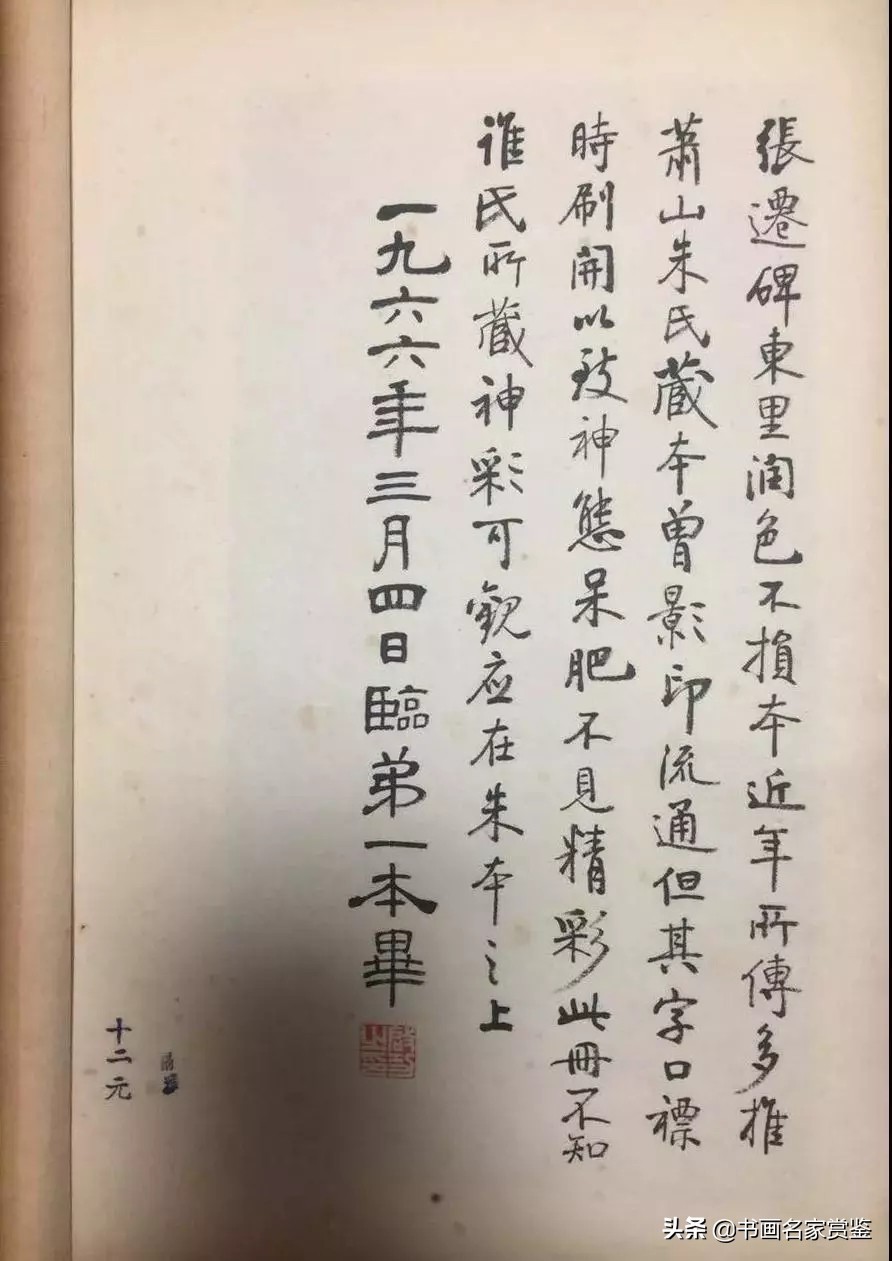 張遷碑東里潤色不損本近年所傳多推
蕭山朱氏藏本曾影印流通但其字口裱
時刷開以致神態呆肥不見精彩此冊不知
誰氏所藏神彩可觀应在朱本之上
一九六六年三月四日臨弟一本畢
十二元
头条 @书画名家赏鉴